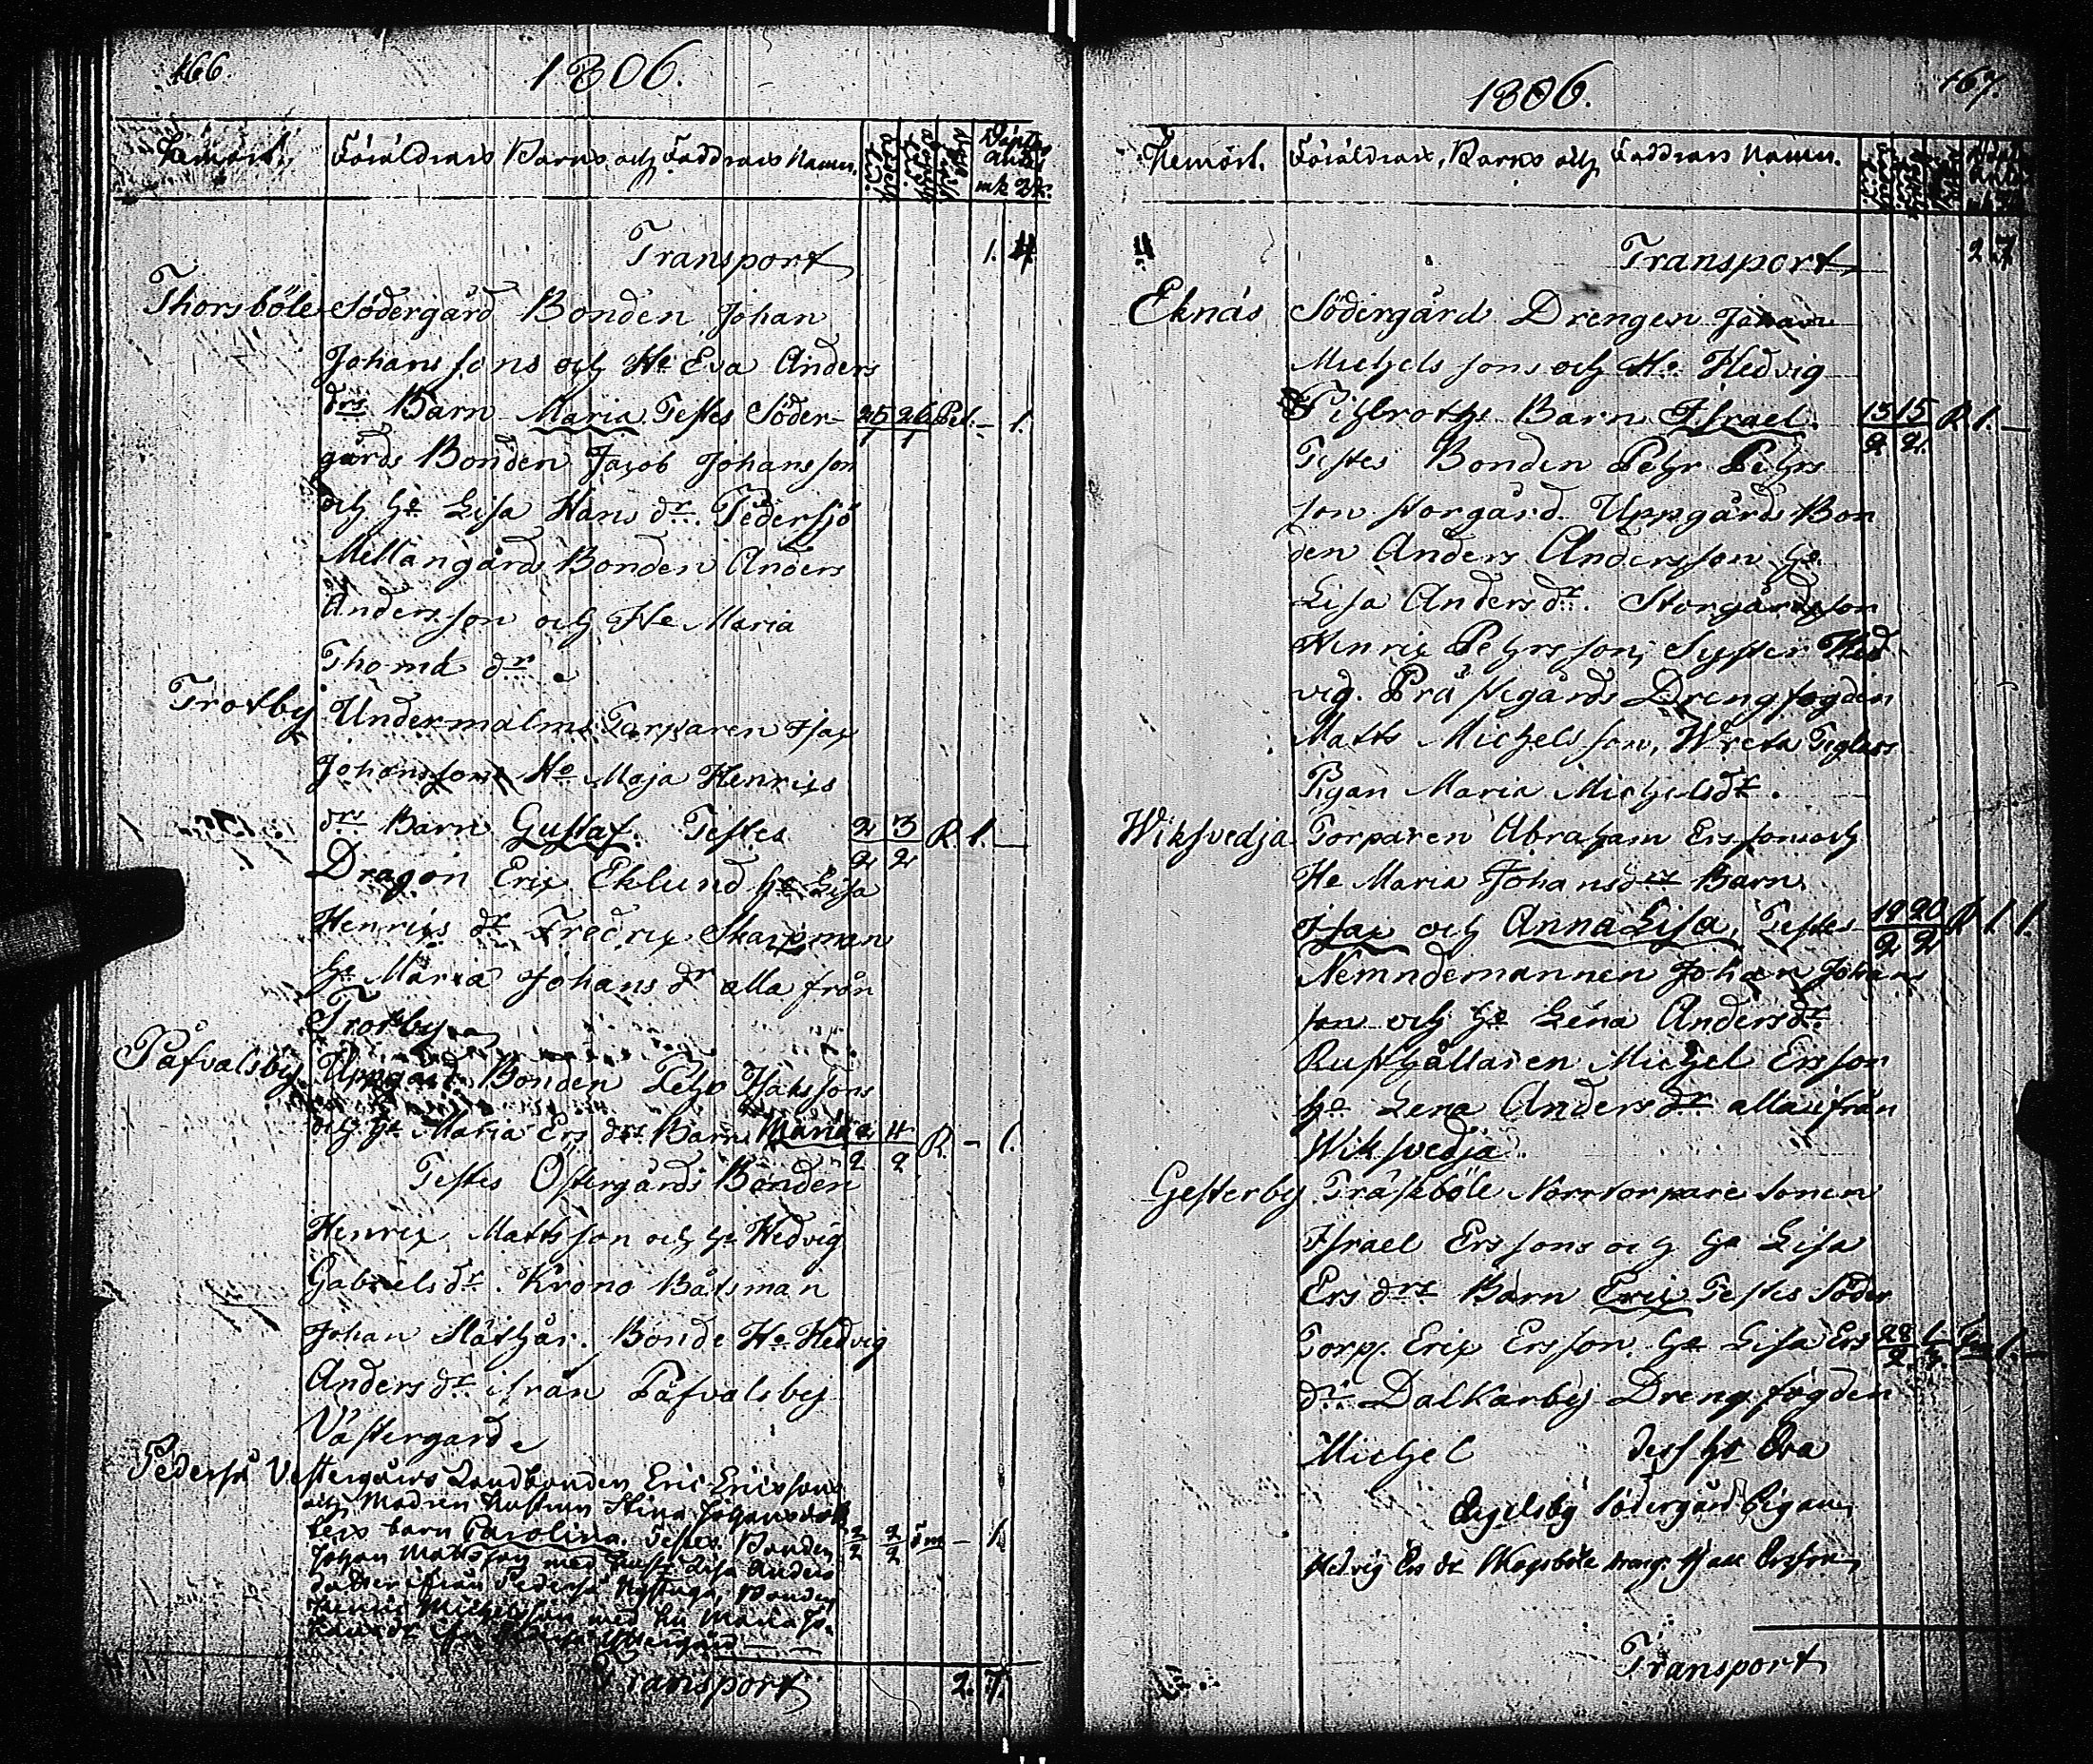 166.
1806.
Hemort.
Föräldrars Barns och Faddrars Namn.
mk
Transport 1. 4
Thorsböle Södergård Bonden Johan
Johanssons och He Eva Anders
drs Barn Maria Testes Söder- 25/1 26/1 - 1.
gårds Bonden Jacob Johansson
och He Lisa Hans dr. Pedersjö
Mellangårds Bonden Anders
Andersson och He Maria
Thomæ dr.
Trotby Undermalms Torparen Isac
Johanssons Ho Maja Henrics
drs Barn Gustaf. Testes 2/2 3/2 R. 1. -
Dragon Eric Eklund He Lisa
Henrics dr Fredric Skarpman
He Maria Johans dr alla från
Trotby
Påfvalsby Uppgård Bonden Pehr Isakssons
och He Maria Ers drs Barn Maria 2/2 4/2 R. - 1.
Testes Östergårds Bonden
Henric Mattsson och He Hedvig
Gabrielsdr. Krono Båtsman
Johan Bonde Ho Hedvig
Andersdr. ifrån Påfvalsby
Västergård
Pederså Vestergårds Landbonden Eric Ericssons
och Modren hustrun Stina Johansdotters
barn Carolina. Testes Bonden 2/2 2/2 - 1.
Johan Mattsson med hustr Lisa Anders
dotter ifrån Pederså Nystuga, Bonden
Henric Michelsson med hu Maria Jo-
hansdr ifr Westergård
Transport 2. 7.
167.
1806.
Hemort. Föräldrars, Barns och Faddrars Namn.
Transport 2 7
Eknäs Södergård Drengen Johan
Michels sons och He Hedvig
Barn Israel. 13/2 15/2 R 1. -
Testes Bonden Pehr Pehrs
son Norgård Uppgårds Bon
den Anders Andersson He
Lisa Anders dr. Storgårds son
Henric Pehrsson, Syster Hed
vig. Prästegårds Drengfogden
Matts Michelsson, Wreta
Pigan Maria Michelsdr.
Wiksvedja Torparen Abraham Erssons och
He Maria Johansdrs Barn
Isac och Anna Lisa, Testes 19/2 20/2 R 1 1.
Nemndemannen Johan Johans
son och He Lena Andersdr.
Rusthållaren Michel Ersson
He Lena Anders dr alla ifrån
Wiksvedja.
Gesterby Träskböle Norrtorpare Sonen
Israel Erssons och He Lisa
Ers drs Barn Eric Testes Söder
Torp. Eric Ersson He Lisa Ers 28/2 1. -
dr. Dalkarby Dreng fogden
Michel dess He Eva
Engelsby Södergård Pigan
Hedvig Ers dr Isac Ersson
Transport